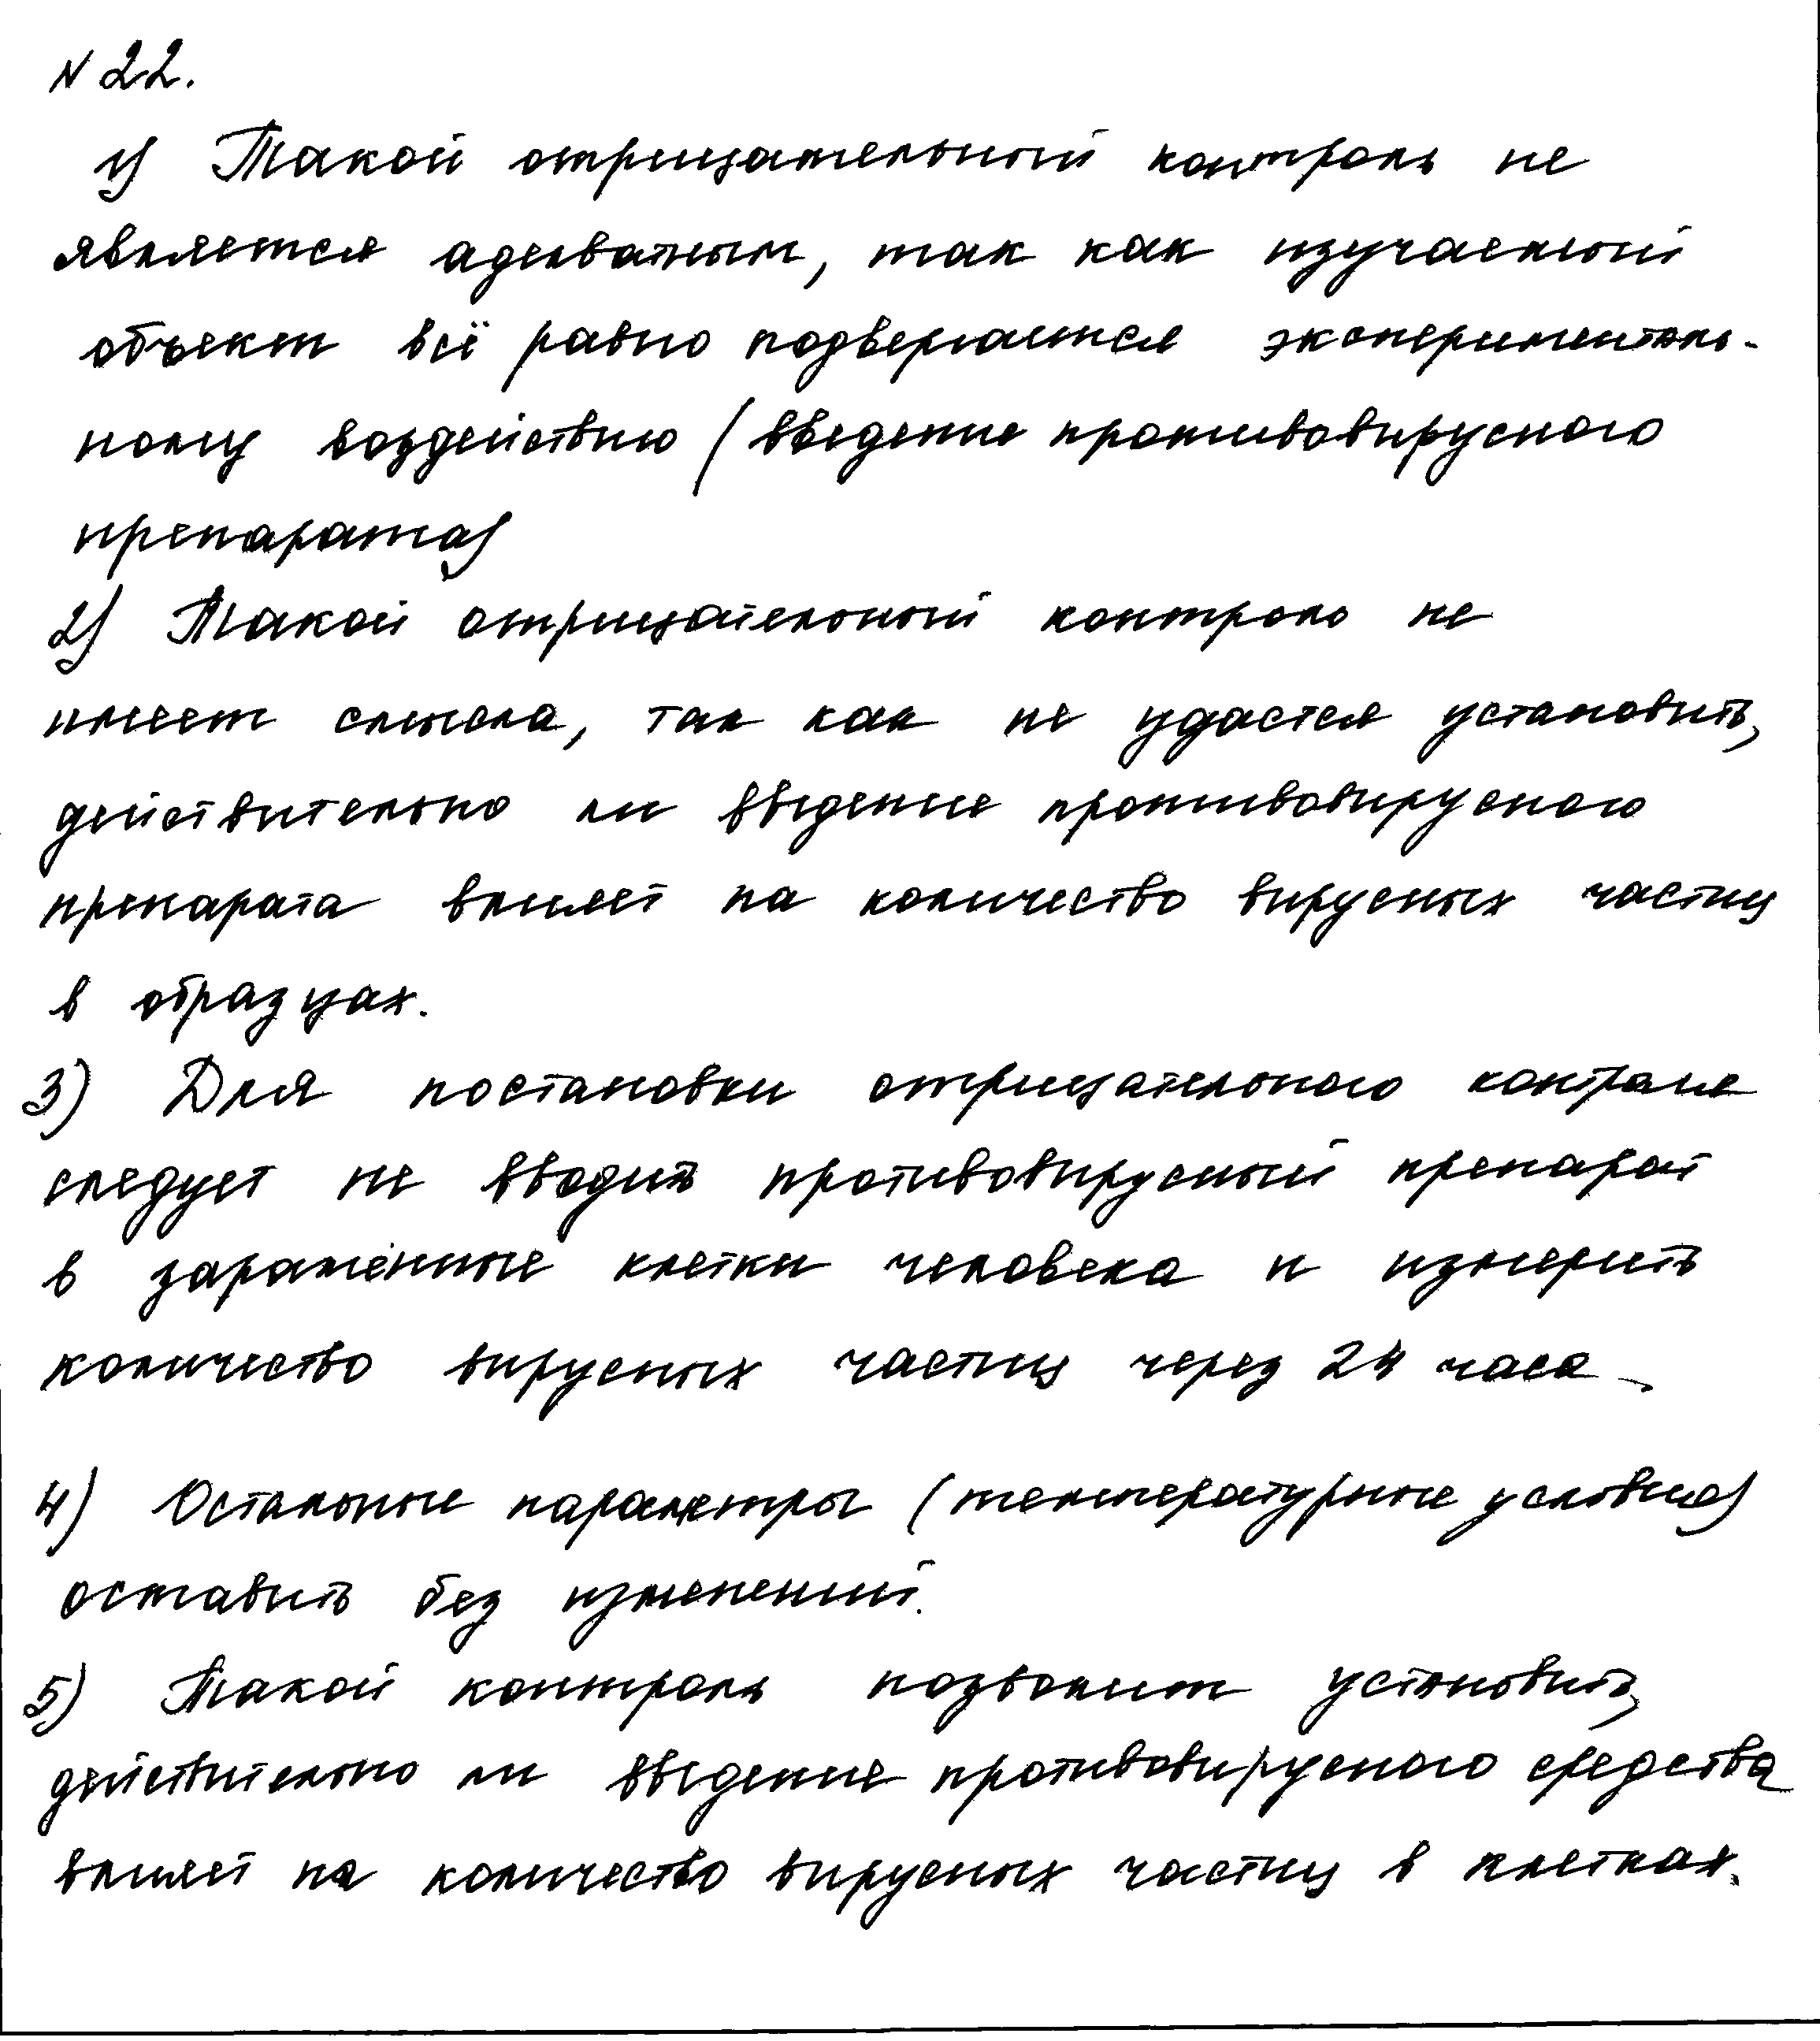 N 22.
1) Такой отрицательный контроль не
является адекватным, так как изучаемый
объект всё равно подвергается эксперименталь-
ному воздействию (введение противовирусного
препарата)
2) Такой отрицательный контроль не
имеет смысла, так как не удастся установить,
действительно ли введение противовирусного
препарата влияет на количество вирусных частиц
в образцах.
3) Для постановки отрицательного контроля
следует не вводить противовирусный препарат
в заражённые клетки человека и измерить
количество вирусных частиц через 24 часа.
4) Остальные параметры (температурные условия)
оставить без изменений.
5) Такой контроль позволит установить,
действительно ли введение противовирусного средства
влияет на количество вирусных частиц в клетках.